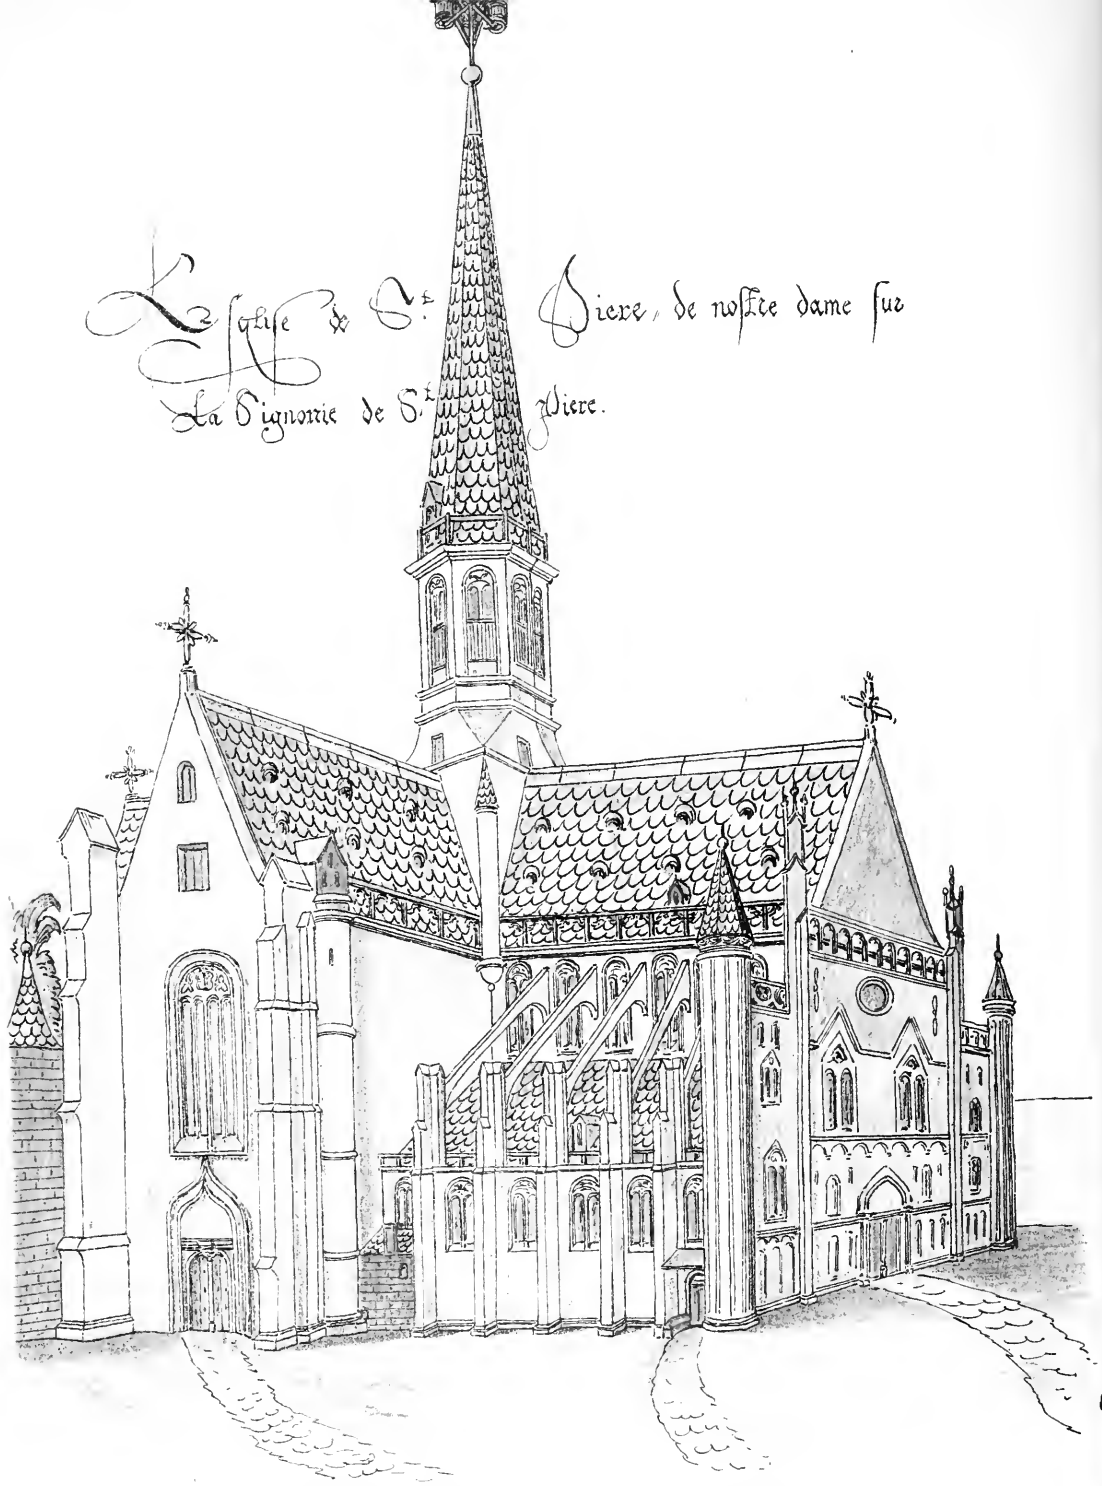 L'esglise de St. Piere, de nostre dame sur
La Signorrie de St. Piere.